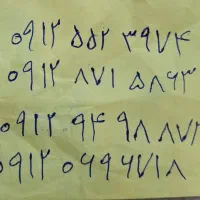 ۰۹۱۲ ۵۵۲ ۳۹۷۴
۰۹۱۲ ۸۷۱ ۵۸۶۳
۰۹۱۲ ۹۴ ۹۸ ۸۷۲
۰۹۱۲ ۰۶۹۶۷۱۸